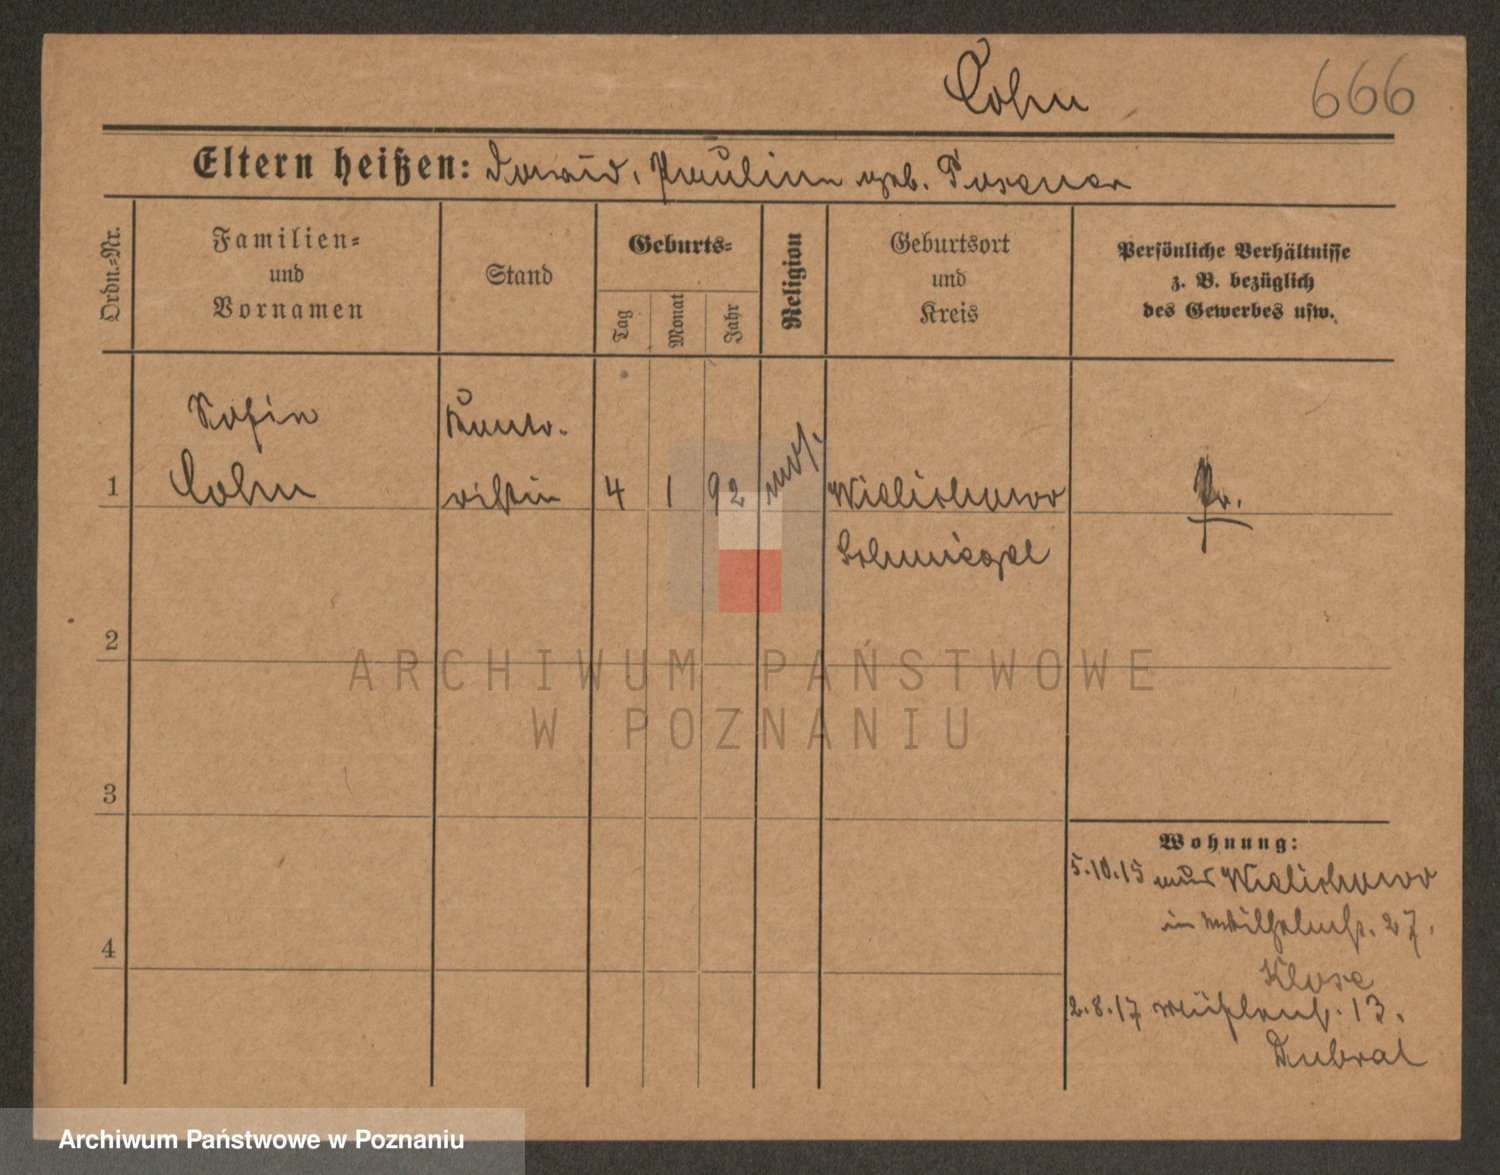 Cohn 666
Eltern heißen: David, Pauline geb. Posener
Ordn.-Nr.
Familien-
und
Vornamen
Stand
Geburts-
Tag
Monat
Jahr
Religion
Geburtsort
und
Kreis
Persönliche Verhältnisse
z. B. bezüglich
des Gewerbes usw.
Sofie Konto-
1 Cohn ristin 4 1 92 mos. Wielichowo Pr.
Schmiegel
2
3
4
Wohnung:
5.10.15 aus Wielichowo
in Wilhelmstr. 27.
Klose
2.8.17 Mühlenstr. 13.
Dubral
ARCHIWUM PAŃSTWOWE
W POZNANIU
Archiwum Państwowe w Poznaniu